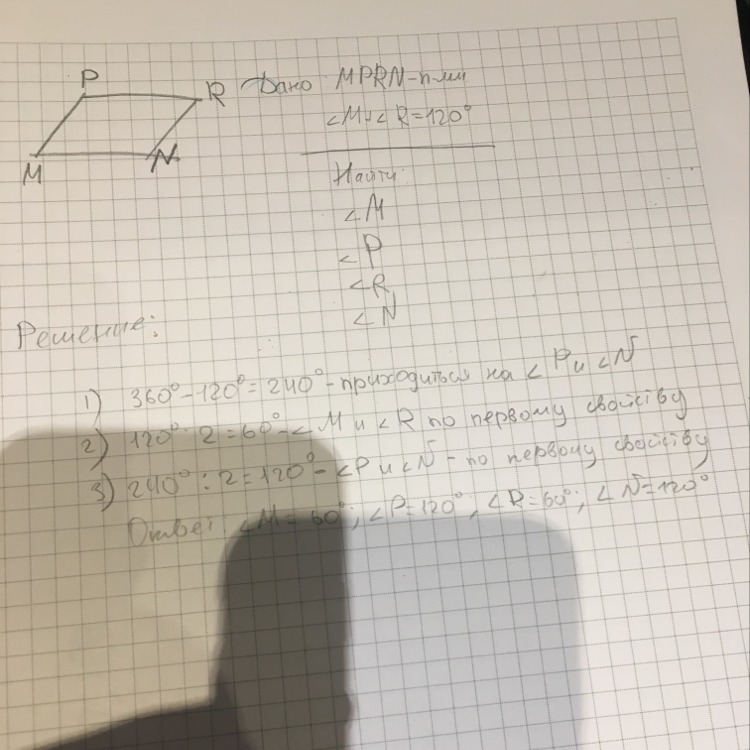 P
R
M
N
Дано MPRN-п-мм
∠M и ∠R=120°
Найти:
∠M
∠P
∠R
∠N
Решение:
1) 360°-120°=240°-приходиться на ∠P и ∠N
2) 120°:2=60°-∠M и ∠R по первому свойству
3) 240°:2=120°-∠P и ∠N-по первому свойству
Ответ: ∠M=60°; ∠P=120°; ∠R=60°; ∠N=120°